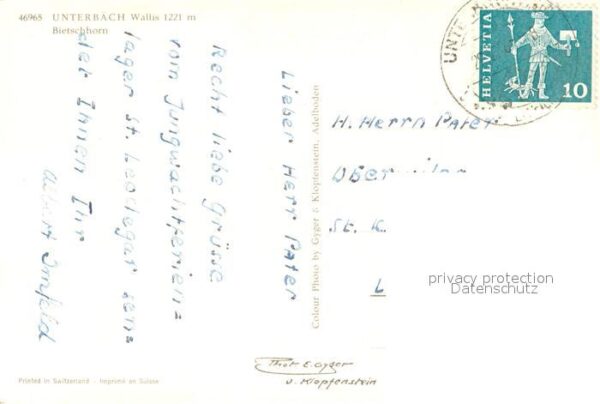 46965 UNTERBACH Wallis 1221 m
Bietschhorn
Lieber Herr Pater
Recht liebe Grüsse
vom Jungwachtferien=
lager St. Leodegar sen=
det Ihnen Ihr
Albert Imfeld
Colour Photo by Gyger & Klopfenstein, Adelboden
HELVETIA
10
UNTE
H. Herrn Pater
St. K
L
privacy protection
Datenschutz
Phot E. Gyger
u. Klopfenstein
Printed in Switzerland - Imprimé en Suisse